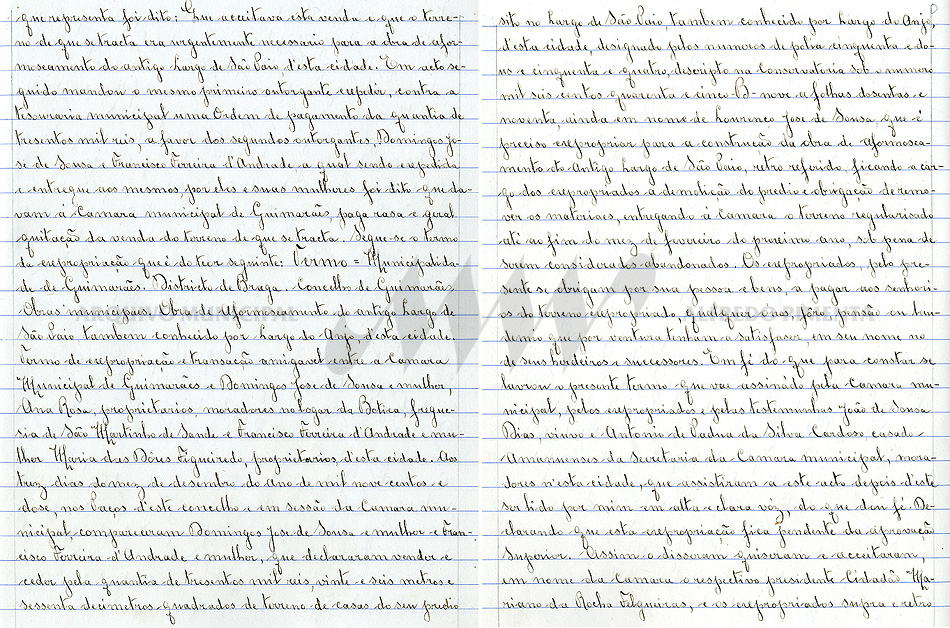 que representa foi dito: Que acceitava esta venda e que o terre-
no de que se tracta era urgentemente necessario para a obra de afor-
moseamento do antigo Largo de São Paio, d'esta cidade. Em acto se-
guido mandou o mesmo primeiro outorgante expedir, contra a
tesouraria municipal uma ordem de pagamento da quantia de
tresentos mil reis, a favor dos segundos outorgantes, Domingos Jo-
se de Sousa e Francisco Ferreira d'Andrade, a qual sendo expedida
e entregue aos mesmos, por eles e suas mulheres foi dito que da-
vam á Camara municipal de Guimarães, paga rasa e geral
quitação da venda do terreno de que se tracta. Segue-se o termo
de expropriação que é do teor seguinte: Termo = Municipalida-
de de Guimarães. Districto de Braga. Concelho de Guimarães.
Obras municipais. Obra de aformoseamento do antigo largo de
São Paio tambem conhecido por largo do Anjo, d'esta cidade.
Termo de expropriação e transacção amigavel entre a Camara
Municipal de Guimarães e Domingos Jose de Sousa e mulher,
Ana Rosa, proprietarios, moradores no logar da Botica, fregue-
sia de São Martinho de Sande e Francisco Ferreira d'Andrade e mu-
lher Maria das Dôres Figueiredo, proprietarios, d'esta cidade. Aos
trez dias do mez de desembro do Ano de mil nove centos e
dose, nos Paços d'este concelho e em sessão da Camara mu-
nicipal, compareceram Domingos Jose de Sousa e mulher e Fran-
cisco Ferreira d'Andrade e mulher, que declararam vender e
ceder pela quantia de tresentos mil reis, vinte e seis metros e
sessenta decimetros quadrados de terreno de casas do seu predio
sito no largo de São Paio, tambem conhecido por largo do Anjo,
d'esta cidade, designado pelos numeros de policia cinquenta e do-
us e cinquenta e quatro, descripto na Conservatoria sob o numero
mil seis centos quarenta e cinco B-nove a folhas dosentas e
noventa, ainda em nome de Lourenco Jose de Sousa, que é
preciso expropriar para a construção da obra de aformosea-
mento do Antigo Largo de São Paio, retro referido, ficando a car-
go dos expropriados a demolição do predio e obrigação de remo-
ver os materiaes, entregando á Camara o terreno regularisado
até ao fim do mez de fevereiro do proximo ano, sob pena de
serem considerados abandonados. Os expropriados, pelo pre-
sente se obrigam por sua pessoa e bens, a pagar aos senhori-
os do terreno expropriado, qualquer onus, fôro, pensão ou lau-
demio que por ventura tenham a satisfaser, em seu nome no
de seus herdeiros e successores. Em fé do que para constar se
lavrou o presente termo que vae assinado pela Camara mu-
nicipal, pelos expropriados e pelas testemunhas João de Sousa
Dias, viuvo e Antonio de Padua da Silva Cardoso, casado
Amanuenses da Secretaria da Camara municipal, mora-
dores n'esta cidade, que assistiram a este acto depois d'este
ser lido por mim em alta e clara voz, do que dou fé. De-
clarando que esta expropriação fica pendente da aprovação
Superior. Assim o disseram, quiseram e acceitaram,
em nome da Camara o respectivo presidente Cidadão Ma-
riano da Rocha Felgueiras, e os expropriados supra e retro
ARCHIVO MUNICIPAL
ALFREDO PIMENTA